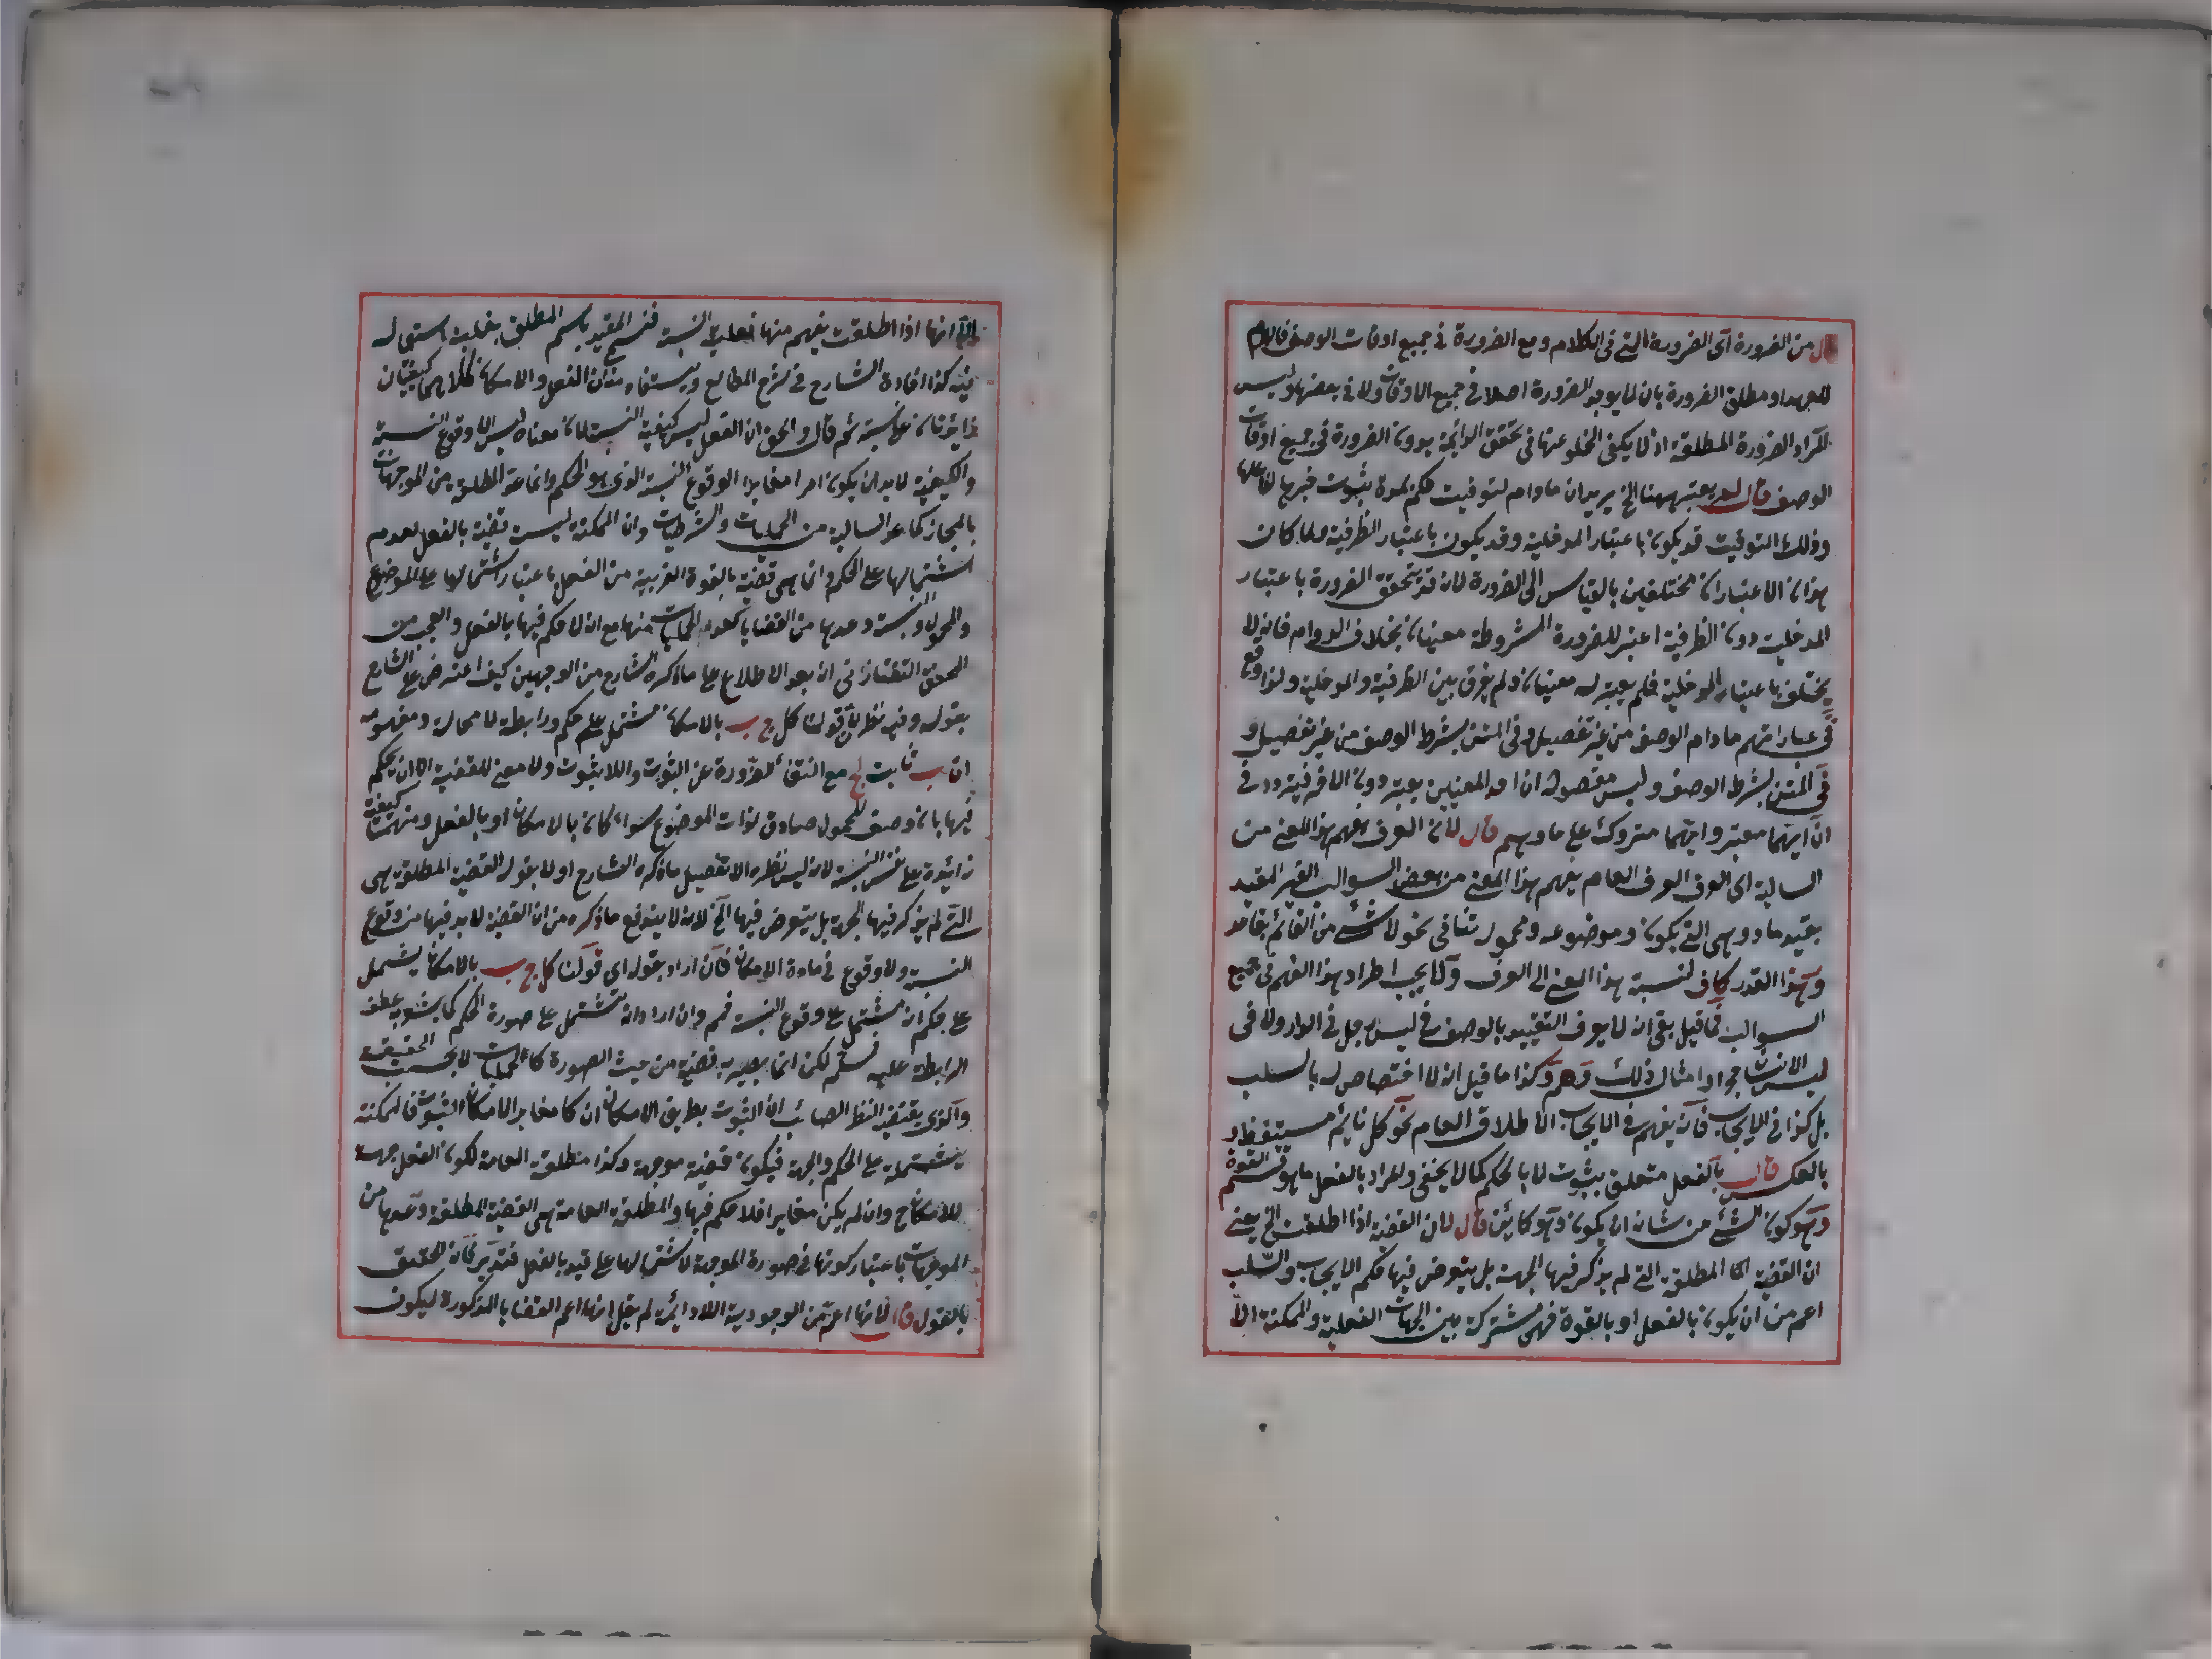 من الضرورة أى الضرورة التى فى الكلام ومع الضرورة فى جميع اوقات الوصف فاللام
للعهد او مطلق الضرورة بان لا يوجد الضرورة اصلا فى جميع الاوقات ولا فى بعضها وليس
المراد الضرورة المطلقة اذ لا يكفى الخلو عنها فى تحقق الدائمة بدون الضرورة فى جميع اوقات
الوصف قال لم يعتبر ههنا الخ يريد ان مادام لتوقيت حكم بمدة ثبوت خبرها لفاعلها
وذلك التوقيت قد يكون باعتبار المدخلية وقد يكون باعتبار الظرفية ولما كان
هذان الاعتباران مختلفين بالقياس الى الضرورة لانه قد يتحقق الضرورة باعتبار
المدخلية دون الظرفية اعتبر للضرورة المشروطة معنيان بخلاف الدوام فانه لا
يختلف باعتبار المدخلية فلم يعتبر له معنيان ولم يفرق بين الظرفية والمدخلية ولذا وقع
فى عباراتهم مادام الوصف من غير تفصيل وفى المتن بشرط الوصف من غير تفصيل و
فى المتن بشرط الوصف وليس مقصوده ان احد المعنيين يعتبر دون الآخر فيتردد فى
ان ايهما معتبر وايهما متروك على ما وهم قال لان العرف يفهم هذا المعنى من
السالبة اى العرف العرف العام يفهم هذا المعنى من بعض السوالب الغير المقيد
بقيد ما وهى التى يكون وموضوعه ومحموله تنافى نحو لا شئ من القائم بقاعد
وهذا القدر كاف لنسبة هذا المعنى الى العرف ولا يجب اطراد هذا الفهم فى جميع
السوالب فما قيل بقى انه لا يعرف التقييد بالوصف فى ليس رجل فى الدار ولا فى
ليس الانسان حجرا وامثال ذلك وهم وكذا ما قيل انه لا اختصاص له بالسلب
بل كذا فى الايجاب فانه يفهم فى الايجاب الاطلاق العام نحو كل نائم مستيقظ و
بالعكس قال بالفعل متعلق بثبوت لا بالحكم كما لا يخفى والمراد بالفعل ما هو قسيم القوة
وهو كون الشئ من شانه ان يكون وهو كائن قال لان القضية اذا اطلقت الخ يعنى
ان القضية المطلقة التى لم يذكر فيها الجهة بل يتعرض فيها حكم الايجاب والسلب
اعم من ان يكون بالفعل او بالقوة فهى مشتركة بين الجهات الفعلية والممكنة الا
انها اذا اطلقت يفهم منها فعلية النسبة فسمى المقيد باسم المطلق بغلبة استعماله
فيه كذا افاده الشارح فى شرح المطالع ويستفاد منه ان الفعل والامكان كلاهما كيفيتان
زائدتان على النسبة ثم قال والحق ان الفعل ليس كيفية النسبة لان معناه ليس الا وقوع النسبة
والكيفية لا بد ان يكون امرا مغايرا لوقوع النسبة الذى هو الحكم وانما عد المطلقة من الموجهات
بالمجاز كما عد السالبة من الحمليات والشرطيات وان الممكنة ليست قضية بالفعل لعدم
اشتمالها على الحكم وانما هى قضية بالقوة القريبة من الفعل باعتبار اشتمالها على الموضوع
والمحمول والنسبة وعدها من القضايا كعدهم المخيلات منها مع انه لا حكم فيها بالفعل والعجب من
المحقق التفتازانى انه بعد الاطلاع على ما ذكره الشارح من الوجهين كيف اعترض على الشارح
بقوله وفيه نظر لان قولنا كل ج ب بالامكان مشتمل على حكم ورابطة لا محالة ومفهومه
ان ب ثابت لج مع انتفاء الضرورة عن الثبوت واللا ثبوت ولا معنى للقضية الا ان يحكم
فيها بان وصف المحمول صادق لذات الموضوع سواء كان بالامكان او بالفعل ومنهما كيفية
زائدة على نفس النسبة لانه ليس نظره الا تفصيل ما ذكره الشارح اولا بقوله القضية المطلقة هى
التى لم يذكر فيها الجهة بل يتعرض فيها الخ لانه لا يندفع ما ذكره من ان القضية لا بد فيها من وقوع
النسبة ولا وقوع فى مادة الامكان فان اراد بقوله اى قولنا كل ج ب بالامكان يشتمل
على حكم انه مشتمل على وقوع النسبة فمم وان اراد انه تشتمل على صورة الحكم كما يشعر به عطف
الرابطة عليه فمسلم لكن انما يصير به قضية من حيث الصورة كالمخيلات لا بحسب الحقيقة
والذى يقتضيه النظر الصائب ان الثبوت بطريق الامكان ان كان مغايرا لامكان الثبوت فالممكنة
يشتملة على الحكم والجهة فيكون قضية موجهة وكذا مطلقة العامة لكون الفعل جهة
للامكان ح وان لم يكن مغايرا فلا حكم فيها والمطلقة العامة هى القضية المطلقة وعدها من
الموجهات باعتبار كونها فى صورة الموجهة لاشتمالها على قيد بالفعل فتدبر فانه الحقيق
بالقول قال لانها اعم من الوجودية اللادائمة لم يقل انها اعم القضايا المذكورة ليكون